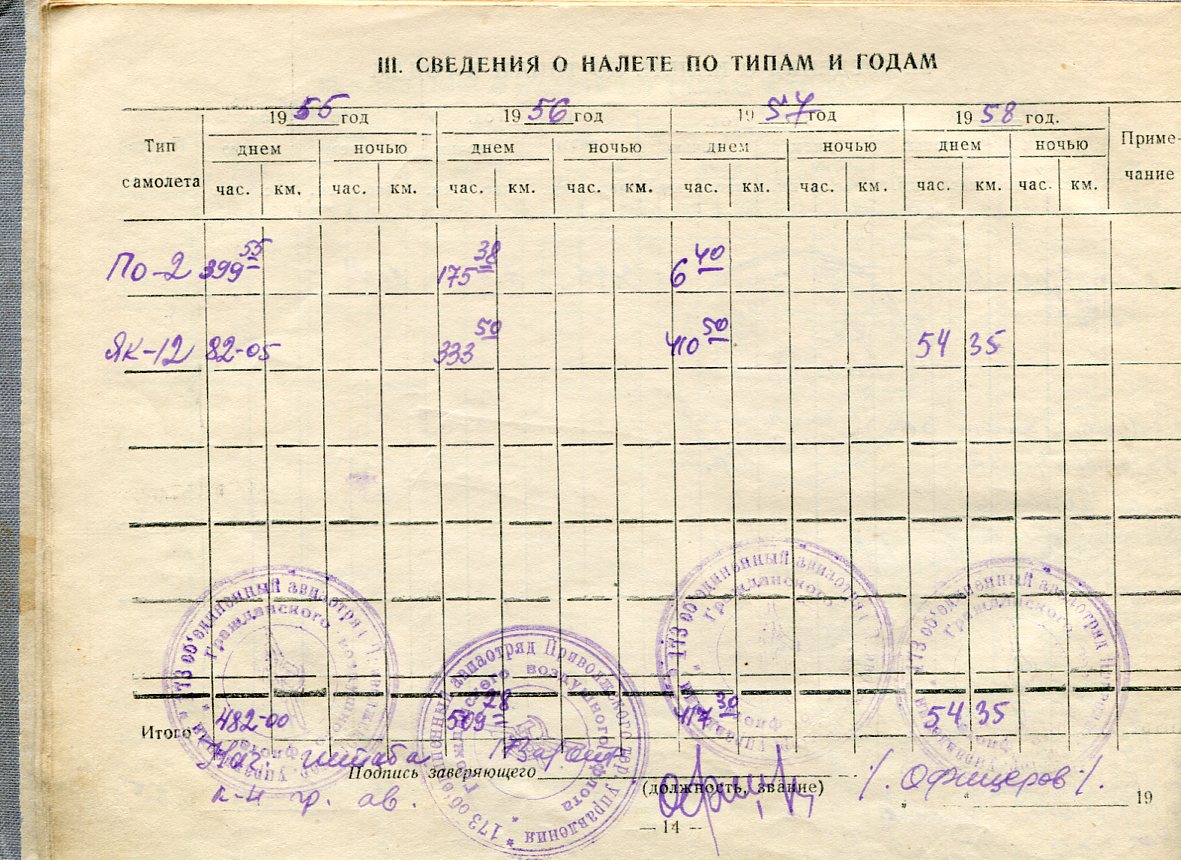 III. СВЕДЕНИЯ О НАЛЕТЕ ПО ТИПАМ И ГОДАМ
Тип самолета 1955 год 1956 год 1957 год 1958 год. Приме-чание
днем ночью днем ночью днем ночью днем ночью
час. км. час. км. час. км. час. км. час. км. час. км. час. км. час. км.
По-2 399 55 175 38 6 40
Як-12 82-05 333 50 410 50 54 35
173 об'единенный авиаотряд Гражданского
173 об'единенный авиаотряд Приволжского тер. Управления Гражданского воздушного флота
173 об'единенный авиаотряд Гражданского
173 об'единенный авиаотряд Гражданского
Итого 482-00 509 28 417 30 54 35
Нач. штаба 173
Подпись заверяющего
(должность, звание)
к-н гр. ав.
/. Офицеров /.
" " 19
— 14 —